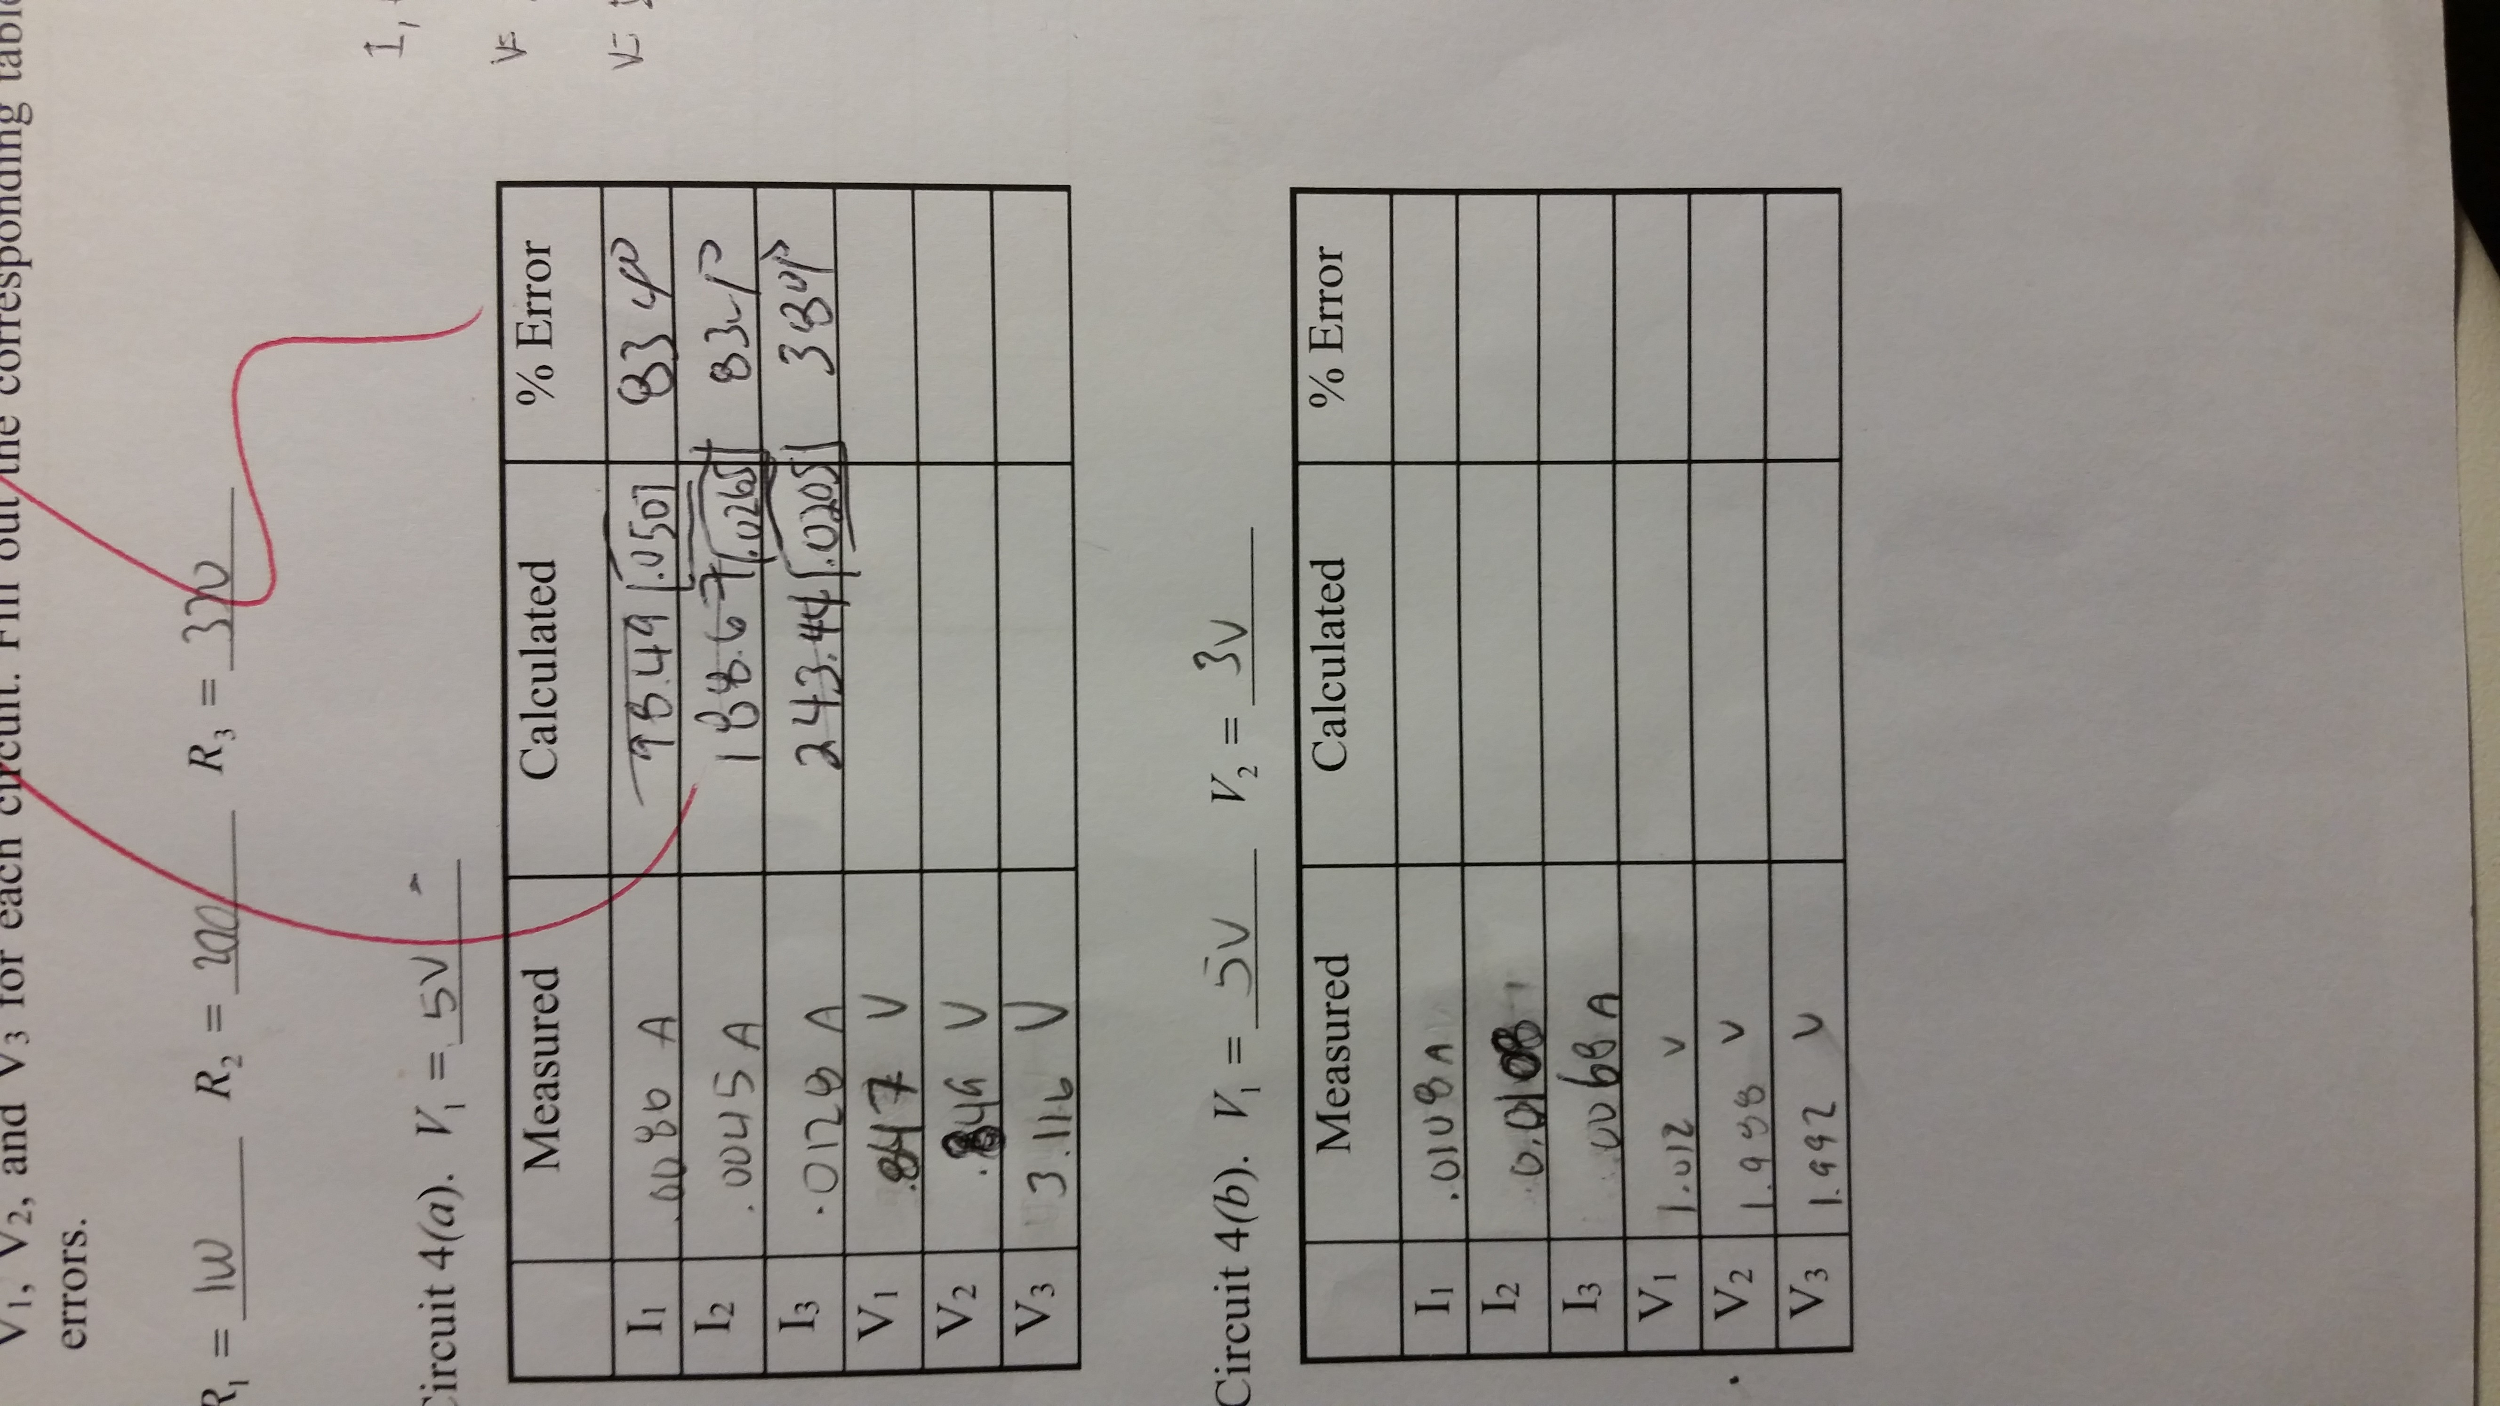 V₁, V₂, and V₃ for each circuit. Fill out the corresponding table
errors.
R₁ = 100 R₂ = 200 R₃ = 300
I₁
V=
V=
Circuit 4(a). V₁ = 5V
Measured Calculated % Error
I₁ .0080 A 78.49 .0501 83%
I₂ .0045 A 188.67 .0265 83%
I₃ .0128 A 243.44 .0205 38%
V₁ .847 V
V₂ .846 V
V₃ 3.116 V
Circuit 4(b). V₁ = 5V V₂ = 3V
Measured Calculated % Error
I₁ .0108 A
I₂
I₃ .0068 A
V₁ 1.012 V
V₂ 1.988 V
V₃ 1.992 V